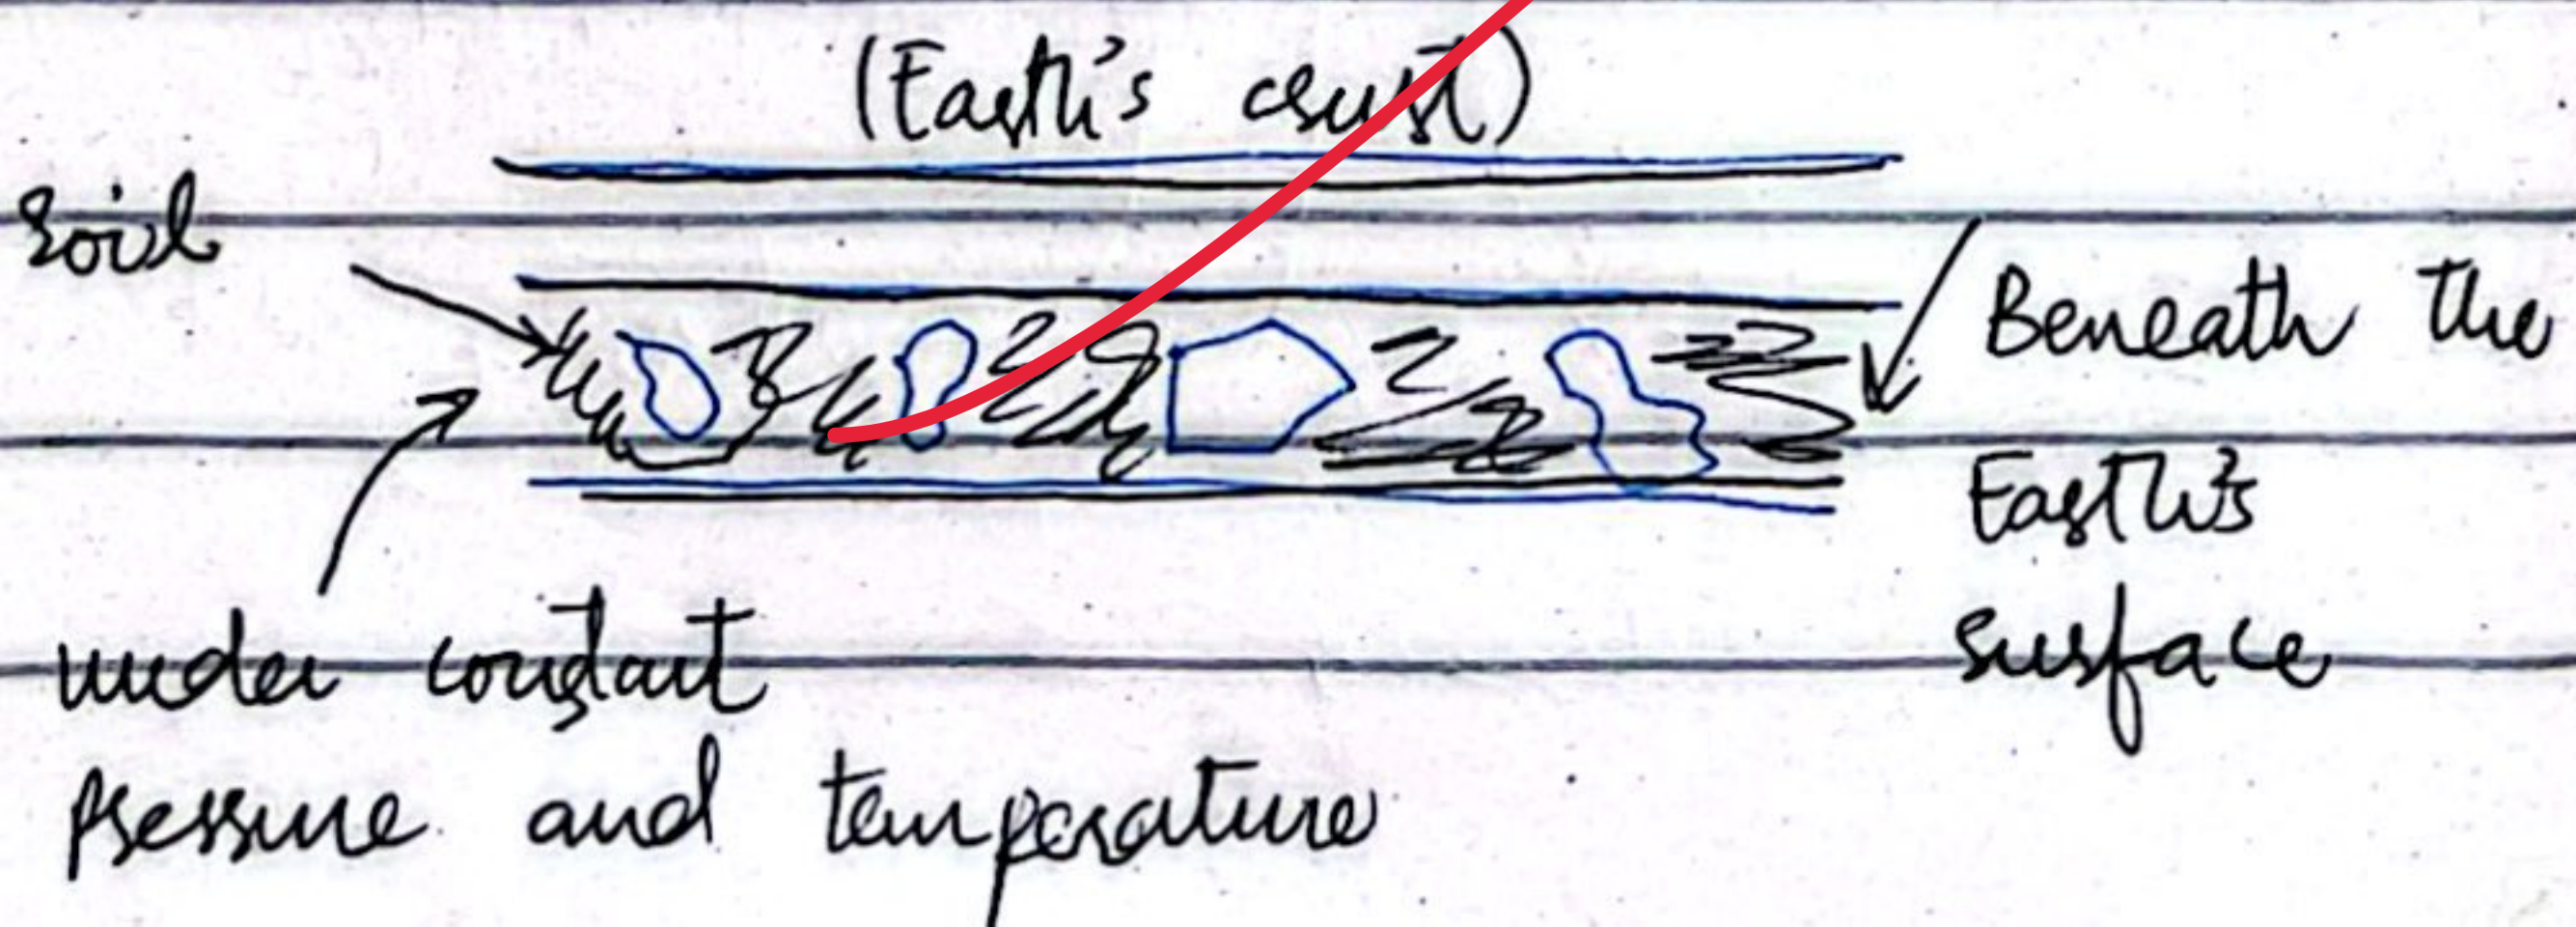 (Earth's crust)
soil
Beneath the
Earth's
surface
under constant
pressure and temperature